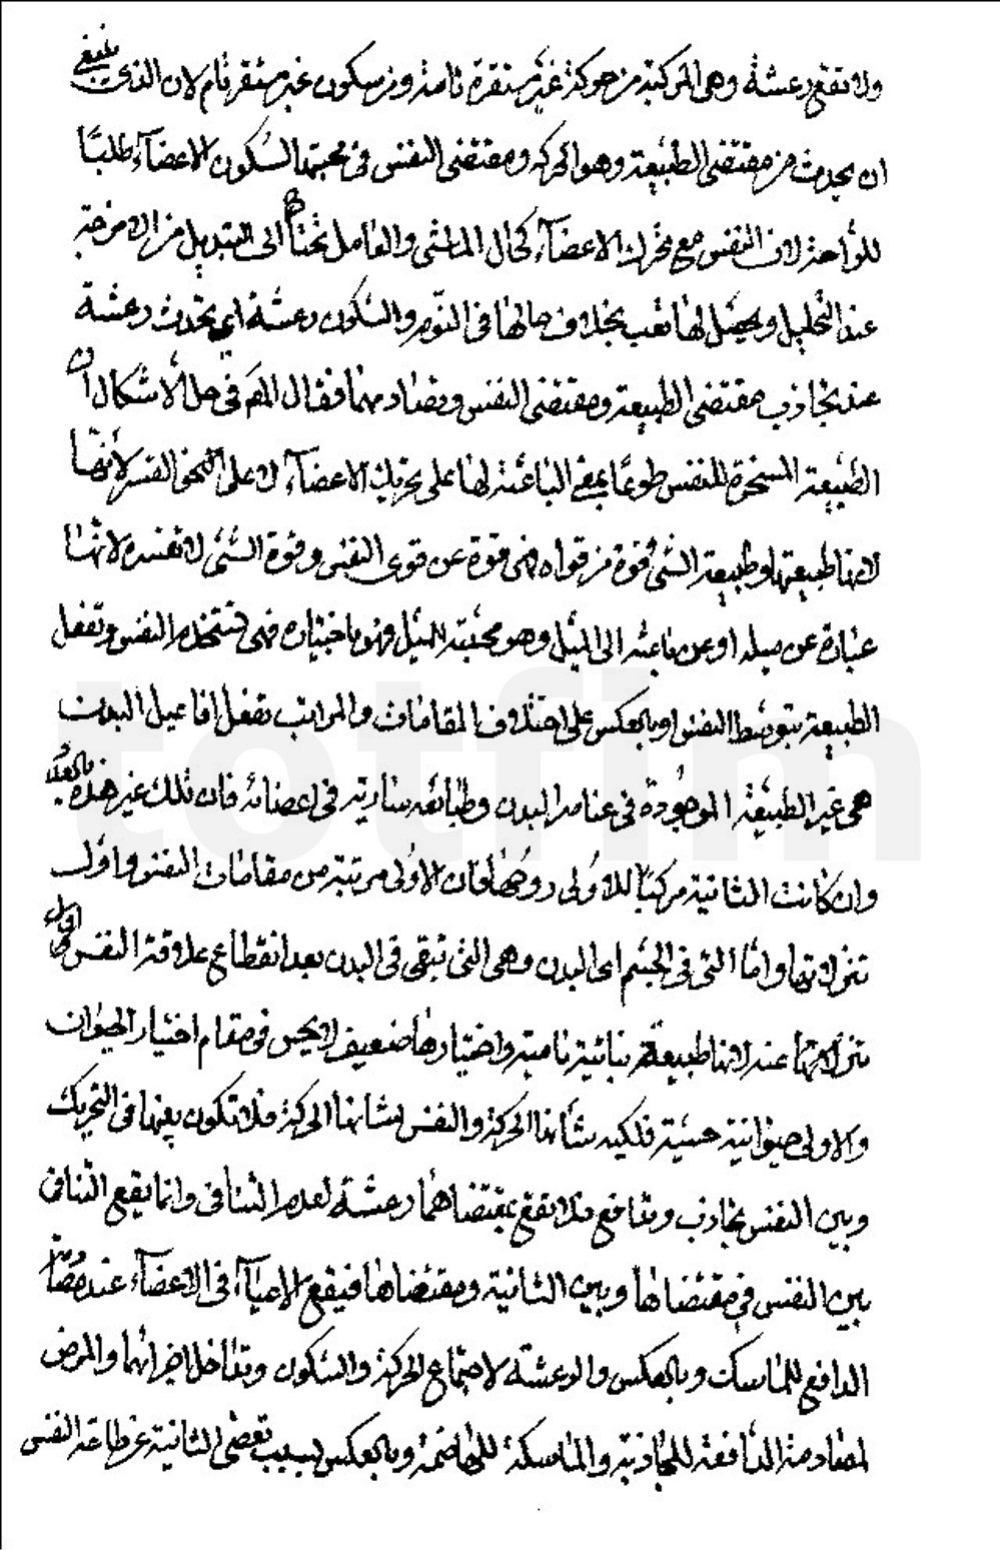 ولا تقع رعشة وهى المركبة من حركة غير مستقرة تامة ومن سكون غير مستقر تام لان الذى ينبغى
ان يحدث من مقتضى الطبيعة وهو الحركة ومقتضى النفس فى محبتها السكون الاعضآء طلبًا
للراحة لان النفس مع تحرك الاعضآء كحال الماشى والعامل تحتاج الى التبديل من الامزجة
عند التحليل ويحصل لها تعب بخلاف حالها فى النّوم والسّكون رعشة اى تحدث رعشة
عند تجاذب مقتضى الطبيعة ومقتضى النفس وتصادمهما فقال المص فى حل الاشكال ان
الطّبيعة المسخرة للنفس طوعًا يعنى الباعثة لها على تحريك الاعضآء لا على النحو القسر لأنها
لانها طبيعتها وطبيعة الشئ قوة من قواه فهى قوة من قوى النفس وقوة الشئ لا تقسره لانها
عبارة عن ميله او عن باعثه الى الميل وهو محبته للميل فهو باختياره فهى تستخدم النفس وتفعل
الطبيعة بتوسّط النفس او بالعكس على اختلاف المقامات والمراتب تفعل افاعيل البدن
هى غير الطبيعة الموجودة فى عناصر البدن وطبائعه سارية فى اعضائه فان تلك غير هذه بالعدد
وان كانت الثانية مركبًا للاولى روحها فان الاولى مرتبة من مقامات النفس واول
تنزلاتها وامّا التى فى الجسم اى البدن وهى التى تبقى فى البدن بعد انقطاع علاقة النفس
تنزلاتها عنه لانها طبيعة نباتية نامية واختيارها ضعيف لا يحس فى مقام اختيار الحيوان
والاولى حيوانية حسّية فلكية شأنها الحركة والنفس شانها الحركة فلا تكون بينها فى التحريك
وبين النفس تجاذب وتدافع فلا تقع بمقتضاهما رعشة لعدم التنافى وانما يقع التنافى
بين النفس فى مقتضاها وبين الثانية ومقتضاها فيقع الاعيآء فى الاعضآء عند
الدافع للماسك وبالعكس والرعشة لاجتماع الحركة والسّكون وتداخل اجزائهما والمرض
لمصادمة الدافعة للجاذبة والماسكة للهاضمة وبالعكس بسبب تعصّى الثانية عن طاعة النفس